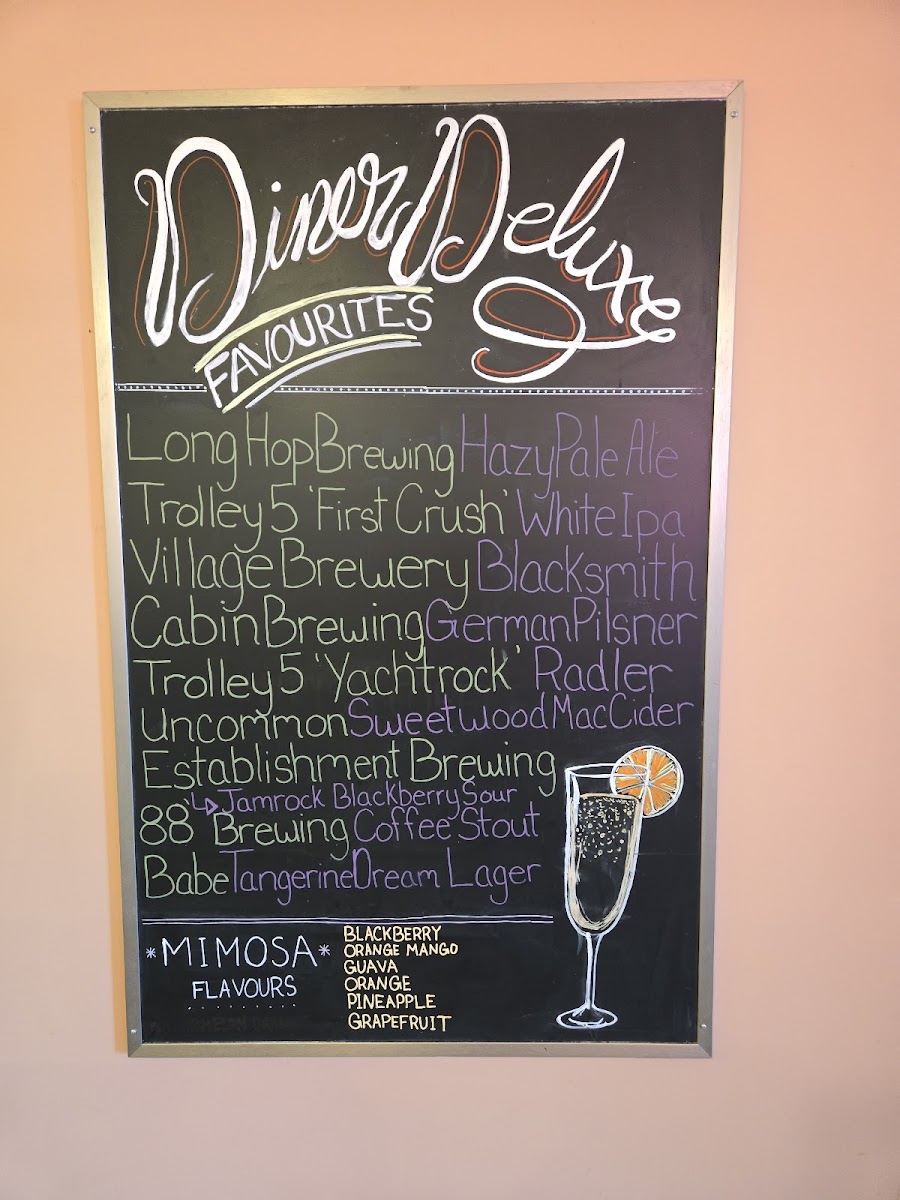 Diner Deluxe
FAVOURITES
Long Hop Brewing Hazy Pale Ale
Trolley 5 'First Crush' White Ipa
Village Brewery Blacksmith
Cabin Brewing German Pilsner
Trolley 5 'Yachtrock' Radler
Uncommon Sweetwood Mac Cider
Establishment Brewing
Jamrock Blackberry Sour
88 Brewing Coffee Stout
Babe Tangerine Dream Lager
*MIMOSA*
FLAVOURS
BLACKBERRY
ORANGE MANGO
GUAVA
ORANGE
PINEAPPLE
GRAPEFRUIT